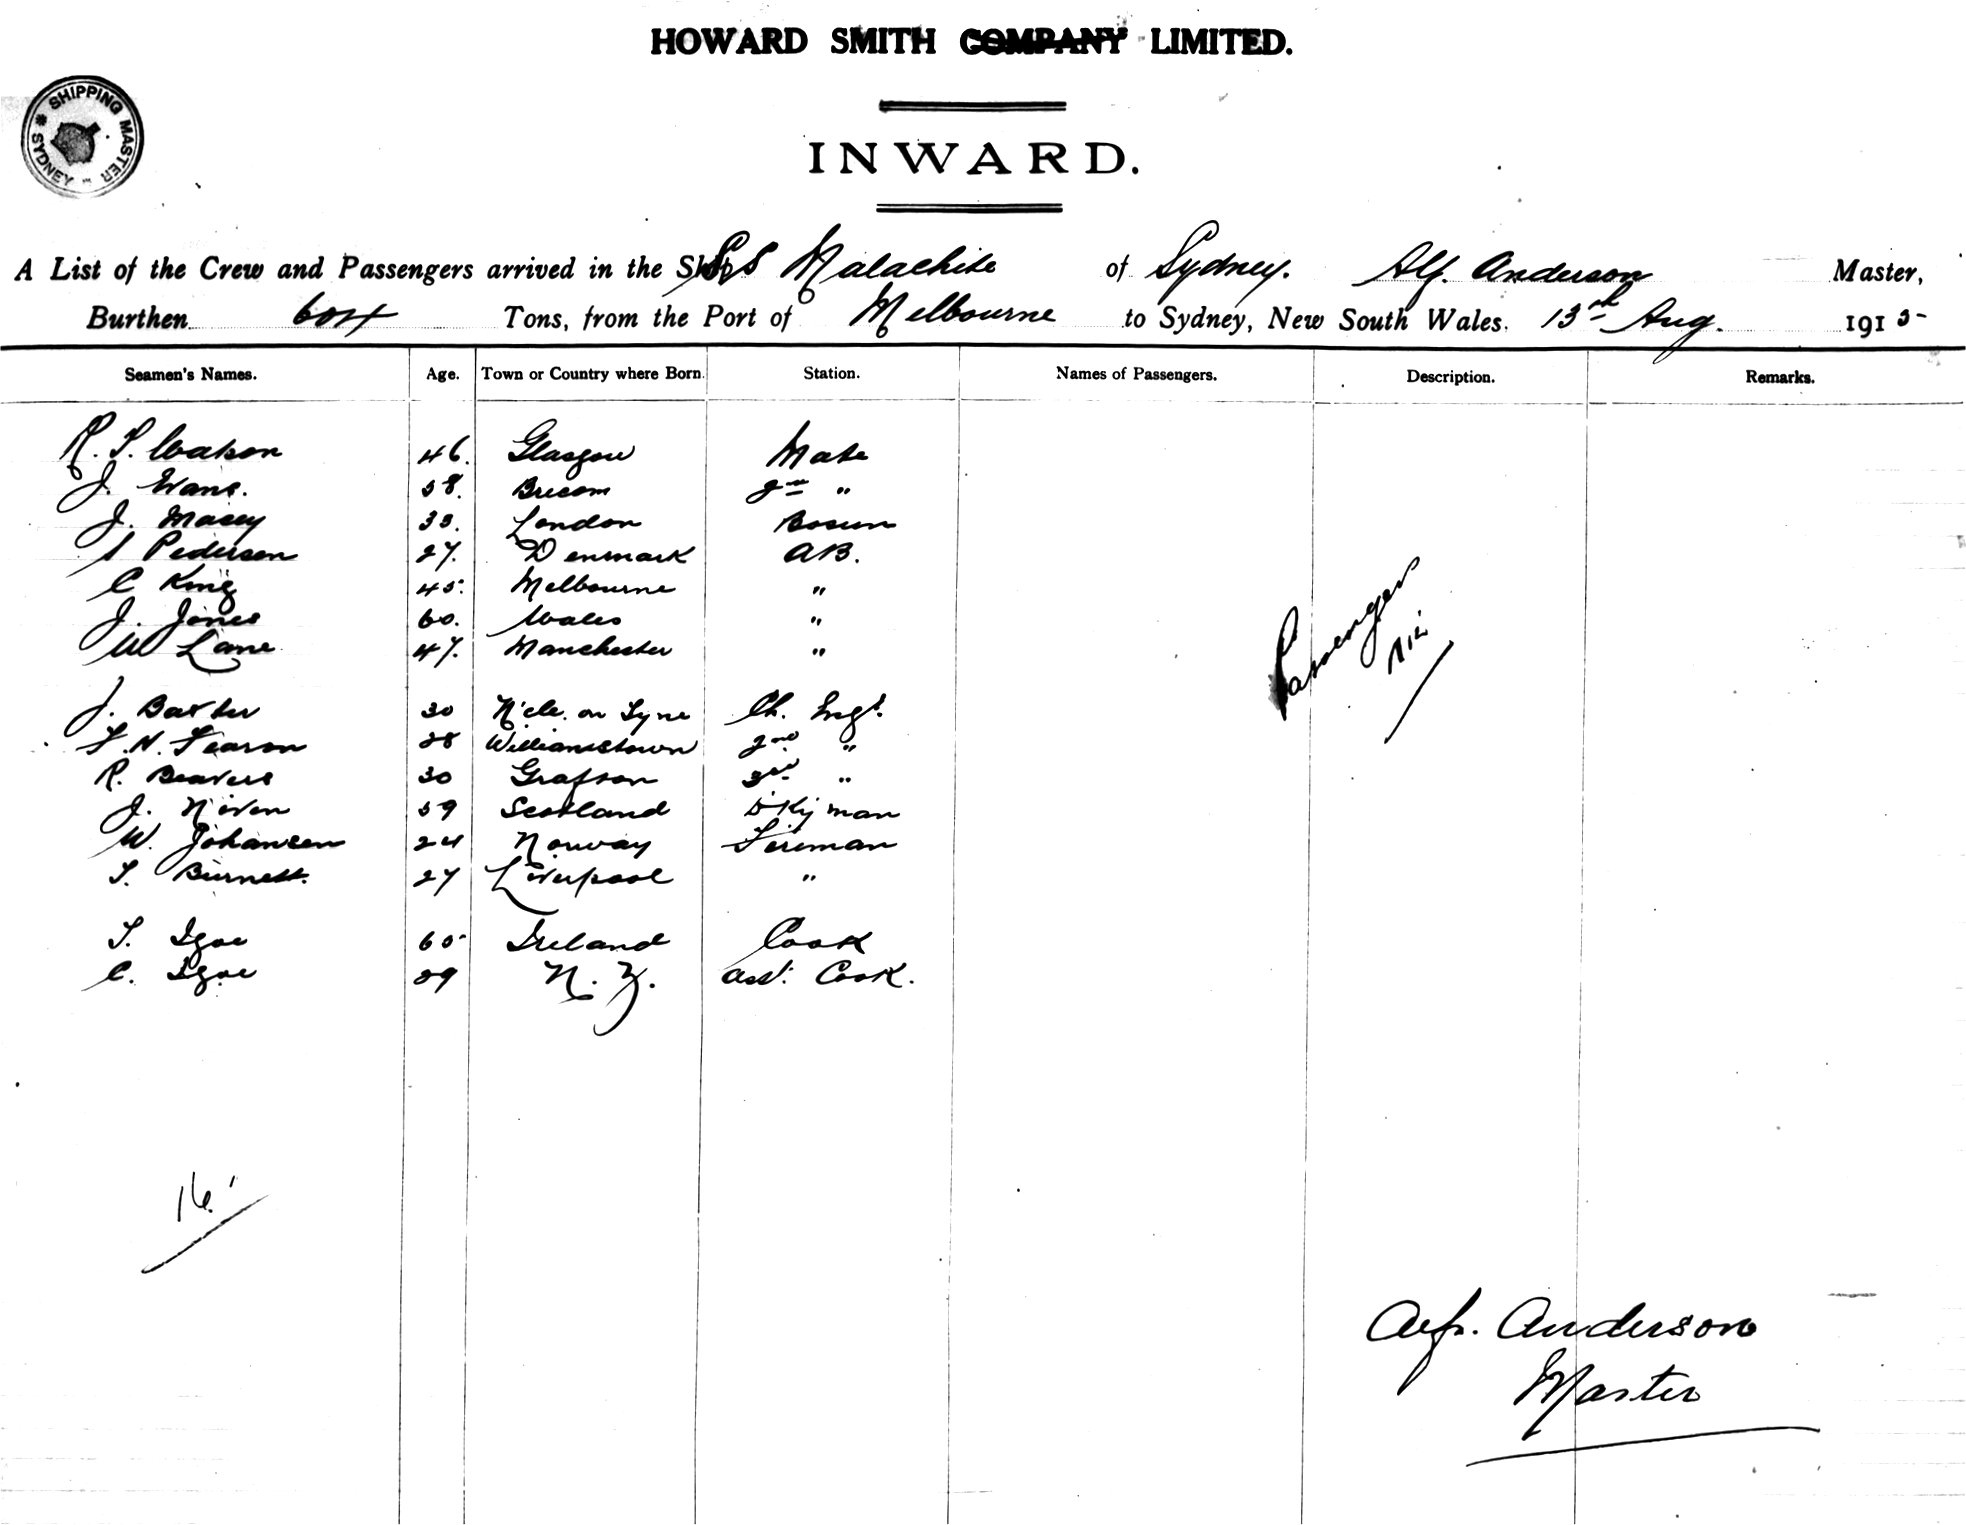 HOWARD SMITH COMPANY LIMITED.
SHIPPING MASTER SYDNEY
INWARD.
A List of the Crew and Passengers arrived in the Ship SS Malachite of Sydney. Alf. Anderson Master,
Burthen Tons, from the Port of Melbourne to Sydney, New South Wales. 13th Aug. 1915
Seamen's Names. Age. Town or Country where Born. Station. Names of Passengers. Description. Remarks.
R. S. Watson 46. Glasgow Mate
J. Evans. 58. 2nd "
J. Macey 33. London Bosun
S Pedersen 27. Denmark AB.
C King 45. Melbourne "
J. Jones 60. Wales "
W Lane 47. Manchester "
Passengers
Nil
J. Baxter 30 N'cle. on Tyne Ch. Engr.
F. N. Fearon 28 Williamstown 2nd "
R. Beavers 30 Grafton 3rd "
J. Niven 59 Scotland D'Kyman
W. Johansen 24 Norway Fireman
T. Burnett. 27 Liverpool "
T. Igoe 65 Ireland Cook
C. Igoe 29 N. Z. Asst. Cook.
16
Alf. Anderson
Master